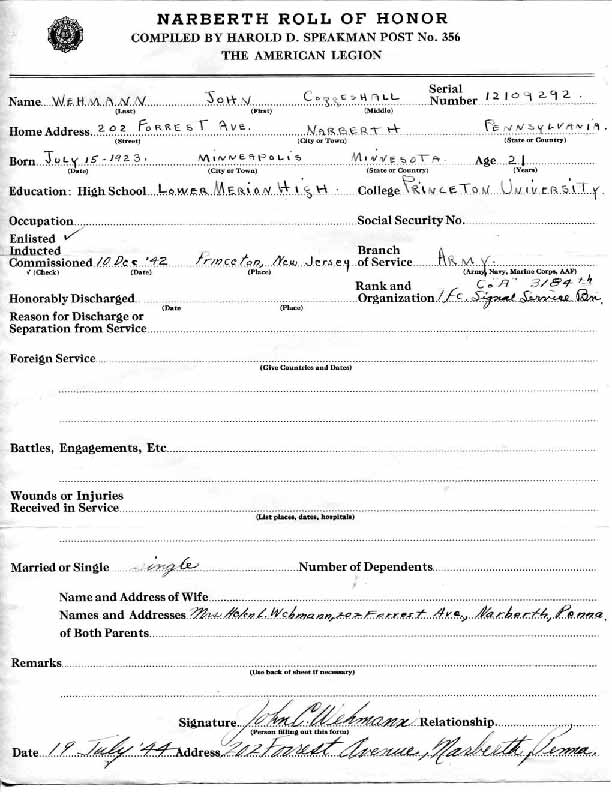 NARBERTH ROLL OF HONOR
COMPILED BY HAROLD D. SPEAKMAN POST No. 356
THE AMERICAN LEGION
Name WEHMANN JOHN COGGESHALL Serial Number 12109292
(Last) (First) (Middle)
Home Address 202 FORREST AVE. NARBERTH PENNSYLVANIA.
(Street) (City or Town) (State or Country)
Born JULY 15-1923. MINNEAPOLIS MINNESOTA. Age 21
(Date) (City or Town) (State or Country) (Years)
Education: High School LOWER MERION HIGH. College PRINCETON UNIVERSITY.
Occupation Social Security No.
Enlisted ✓
Inducted
Commissioned 10 Dec '42 Princeton, New Jersey Branch of Service ARMY.
√ (Check) (Date) (Place) (Army, Navy, Marine Corps, AAF)
Honorably Discharged Rank and Organization Pfc. Co A 3184th Signal Service Bn
(Date (Place)
Reason for Discharge or
Separation from Service
Foreign Service
(Give Countries and Dates)
Battles, Engagements, Etc
Wounds or Injuries
Received in Service
(List places, dates, hospitals)
Married or Single Single Number of Dependents
Name and Address of Wife
Names and Addresses Mrs John L. Wehmann, 202 Forrest Ave, Narberth, Penna.
of Both Parents
Remarks
(Use back of sheet if necessary)
Signature John C. Wehmann Relationship
(Person filling out this form)
Date 19 July '44 Address 202 Forrest Avenue, Narberth, Penna.